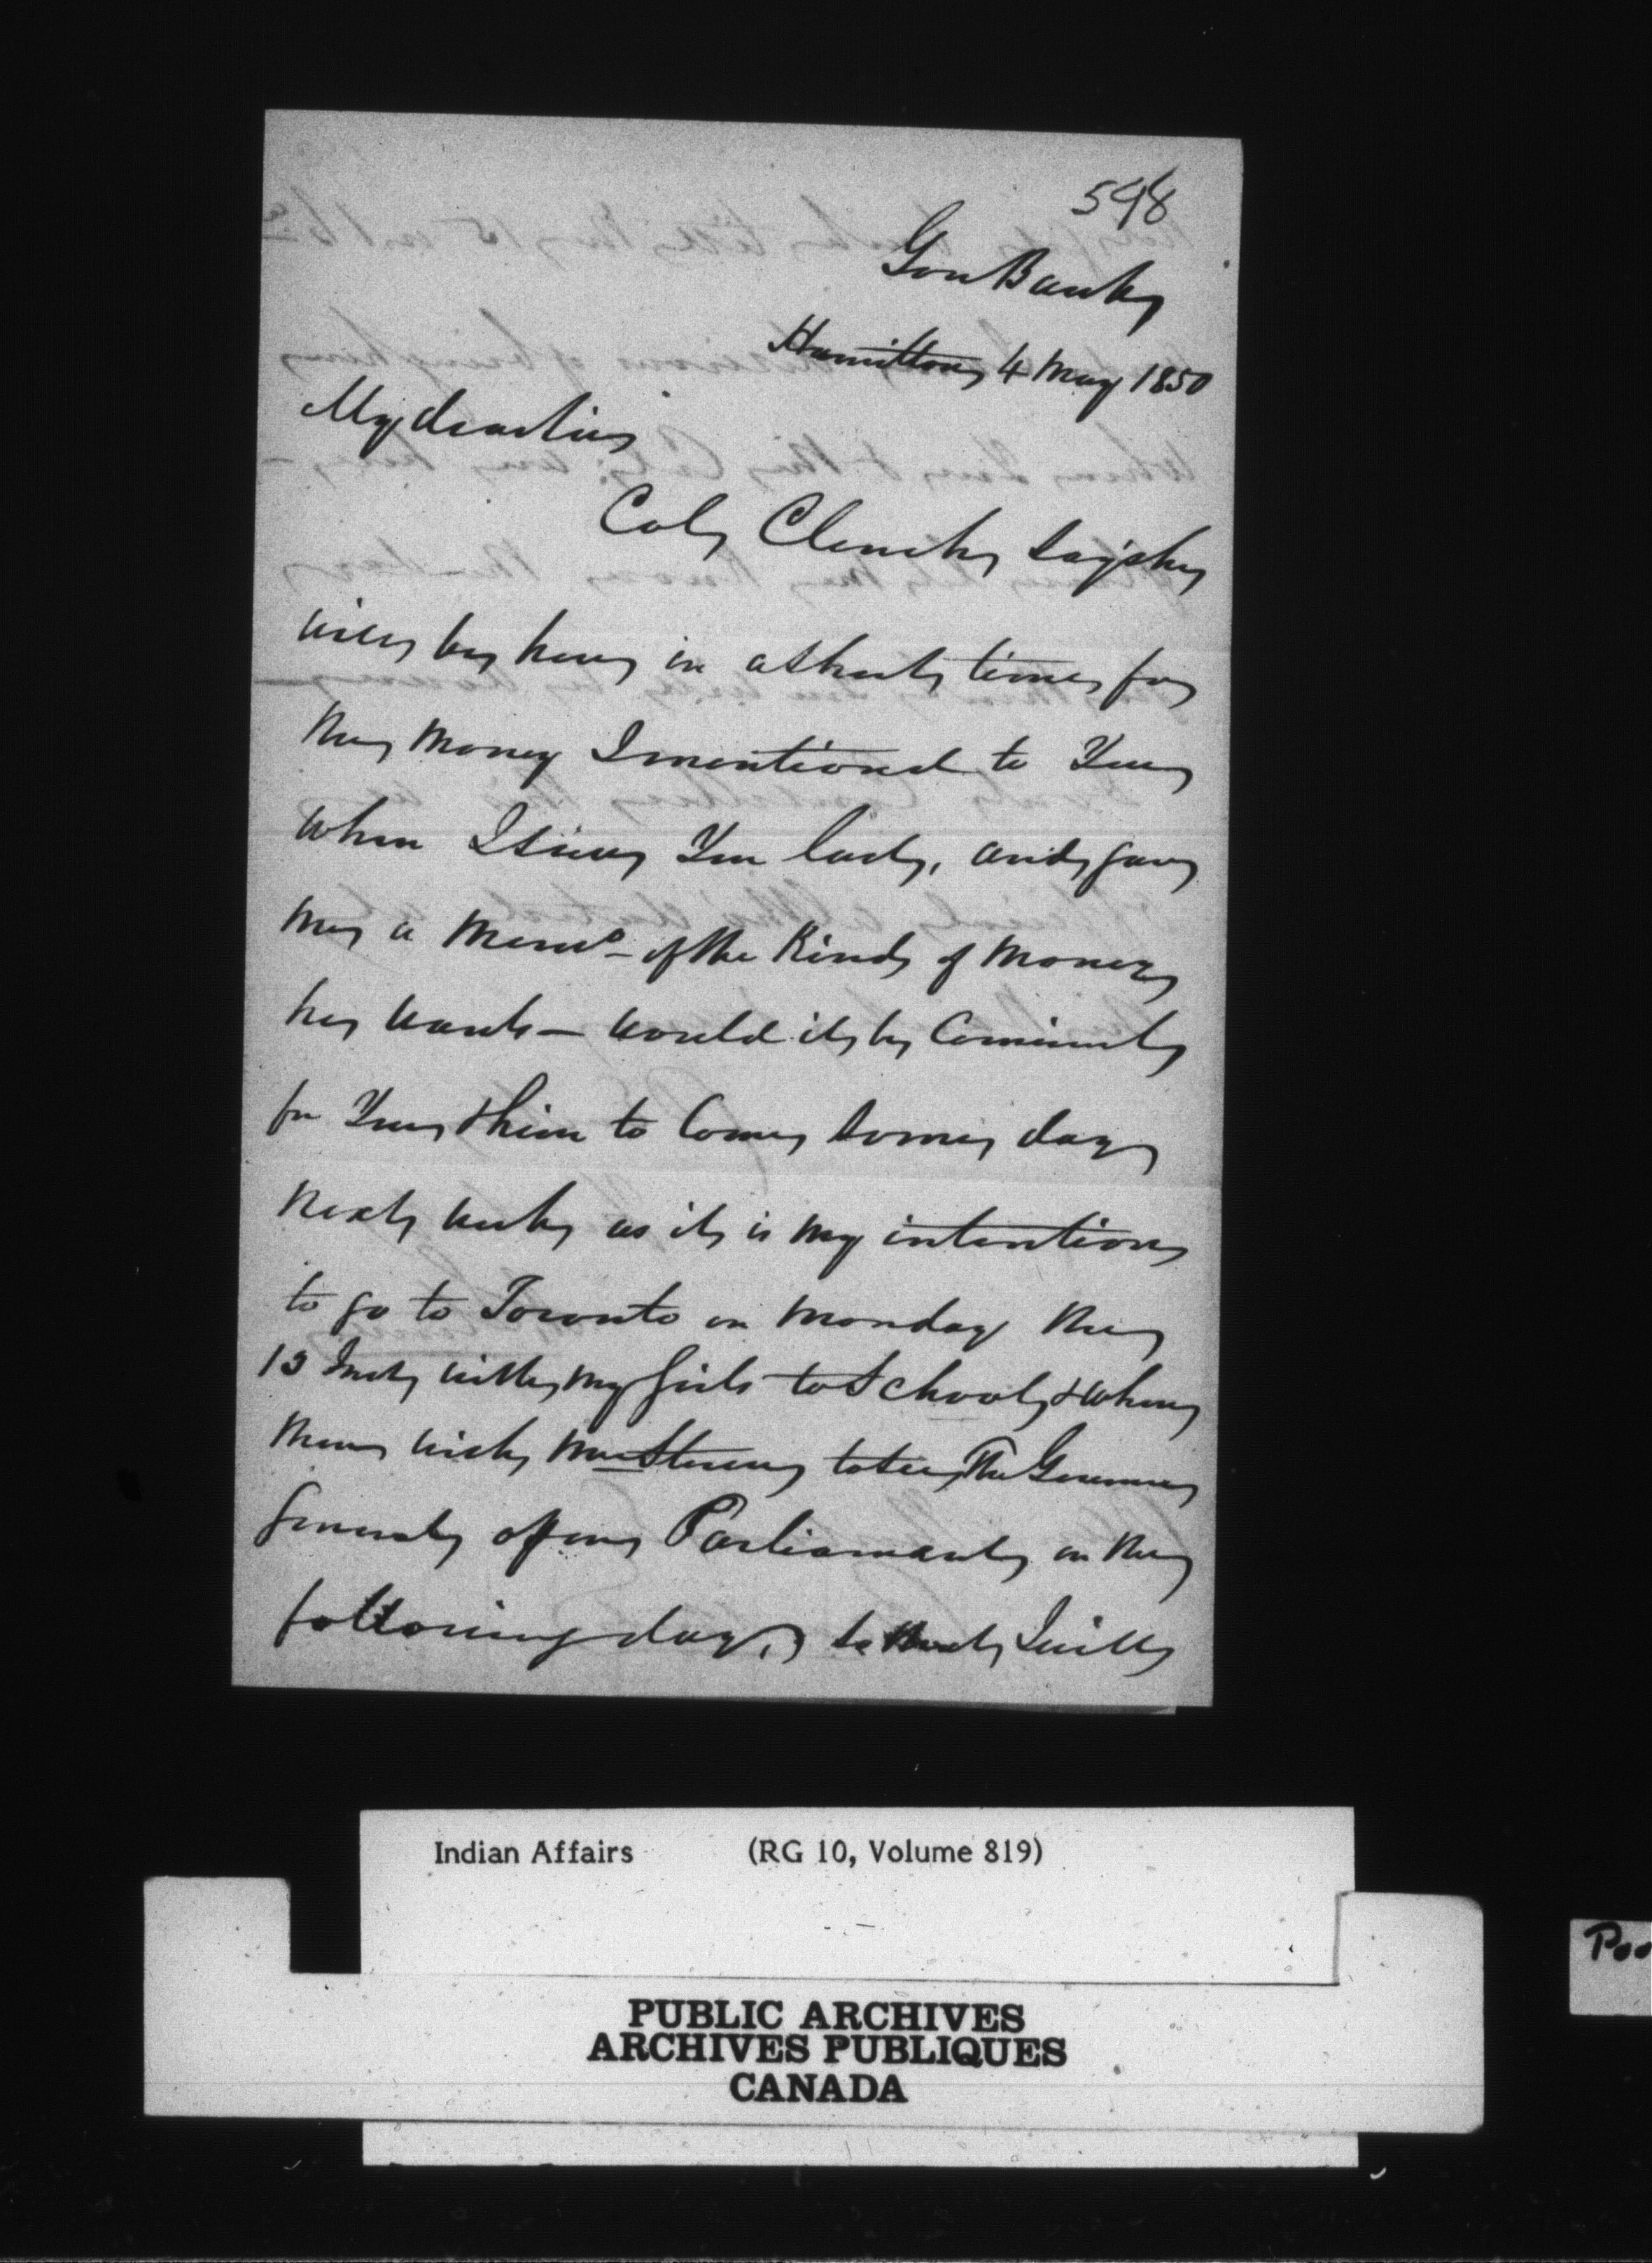 598
Gore Bank
Hamilton 4 May 1850
My dear Sir
Col Clench says he
will be here in a short time for
the money I mentioned to you
when I saw you last, and gave
me a Memo - of the Kind of money
he wants - would it be Convenient
for You & him to Come some day
next week as it is my intention
to go to Toronto on Monday the
13 Inst with my Girls to School, & when
there wish Mrs Steven to see The Governor
General open Parliament on the
following day, so that I will
Indian Affairs (RG 10, Volume 819)
PUBLIC ARCHIVES
ARCHIVES PUBLIQUES
CANADA